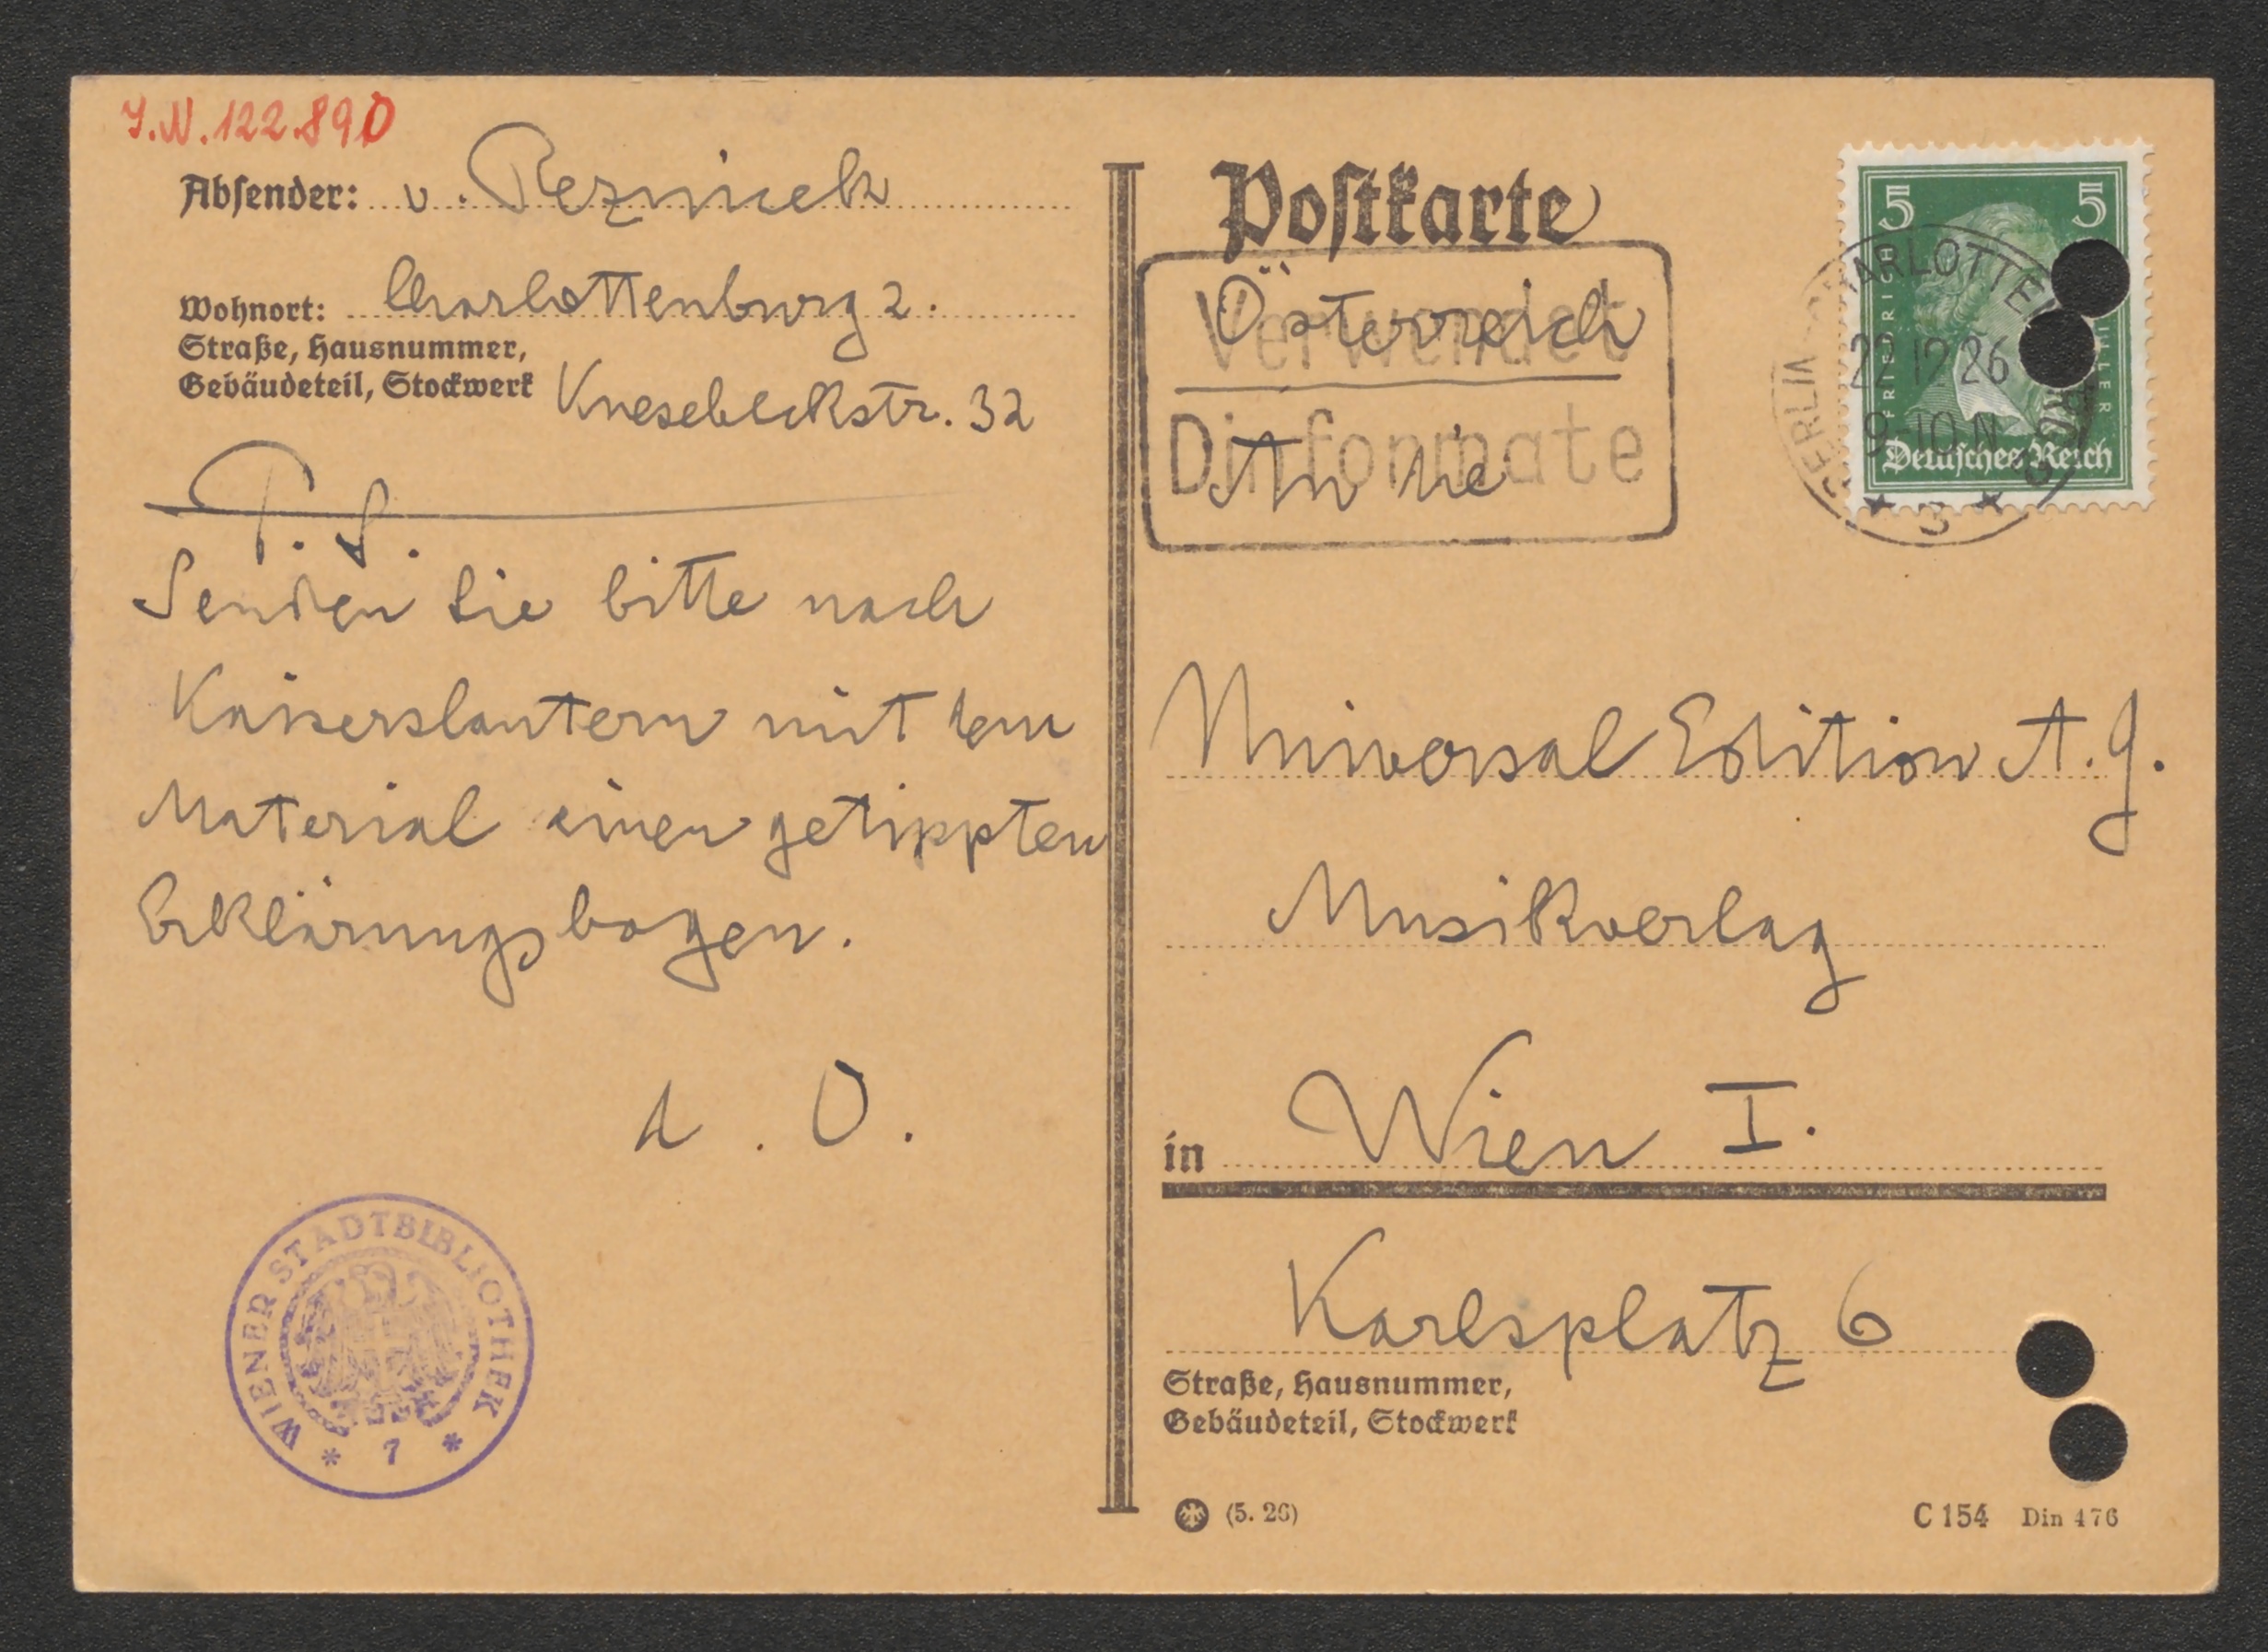 I.N. 122.890
Absender: v. Reznicek
Wohnort: Charlottenburg 2.
Straße, Hausnummer,
Gebäudeteil, Stockwerk Knesebeckstr. 32
P. S.
Senden Sie bitte nach
Kaiserslautern mit dem
Material einen getippten
Erklärungsbogen.
d. O.
WIENER STADTBIBLIOTHEK
* 7 *
Postkarte
Österreich
Verwendet
Dinformate
An die
Universal Edition A. G.
Musikverlag
in Wien I.
Karlsplatz 6
Straße, Hausnummer,
Gebäudeteil, Stockwerk
(5. 26)
C 154 Din 476
5 5
FRIEDRICH
Deutsches Reich
BERLIN
22 12 26
9-10 N
* 3 *